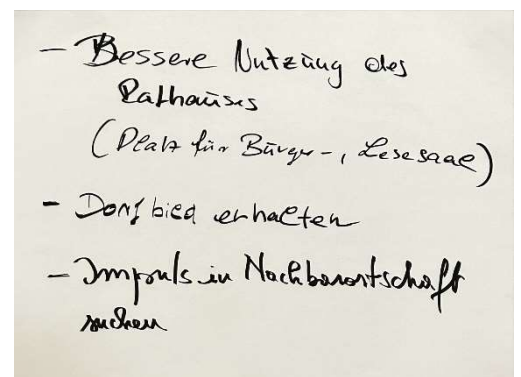 - Bessere Nutzung des
Rathauses
(Platz für Bürger-, Lesesaal)
- Dorfbild erhalten
- Impuls in Nachbarortschaft
suchen